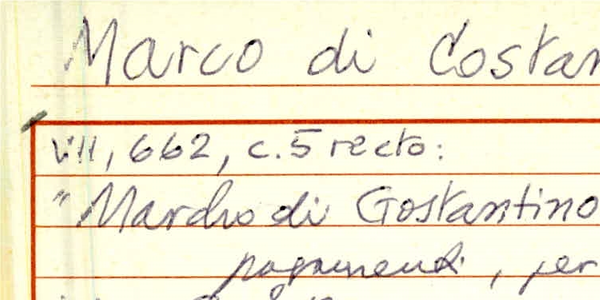 Marco di Costan
VII, 662, c. 5 recto:
"Marcho di Gostantino
pagamenti, per